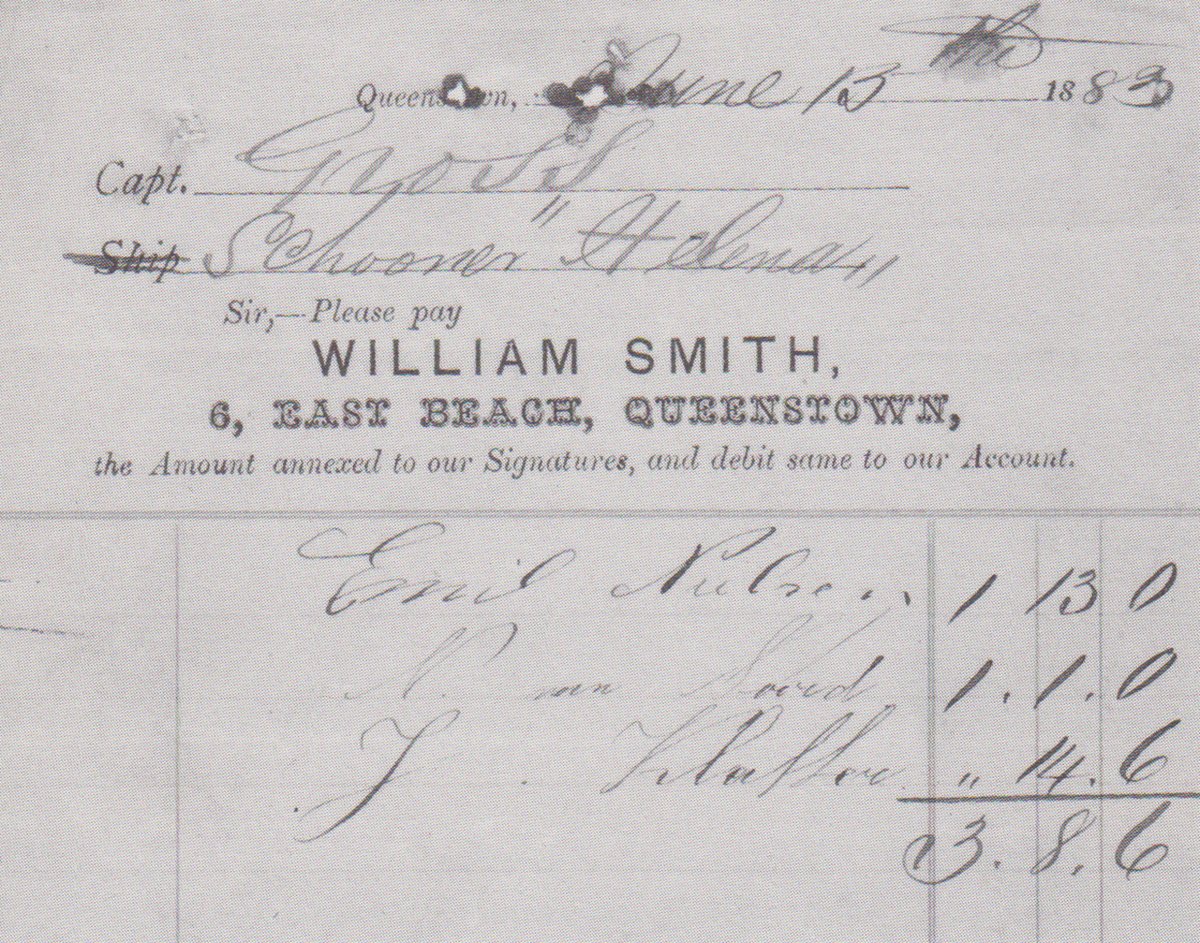 Queenstown, June 13 the 1883
Capt. Gross
Ship Schooner "Helena"
Sir,—Please pay
WILLIAM SMITH,
6, EAST BEACH, QUEENSTOWN,
the Amount annexed to our Signatures, and debit same to our Account.
Emil 1 13 0
N. van 1. 1. 0
J. „ 14. 6
3. 8. 6